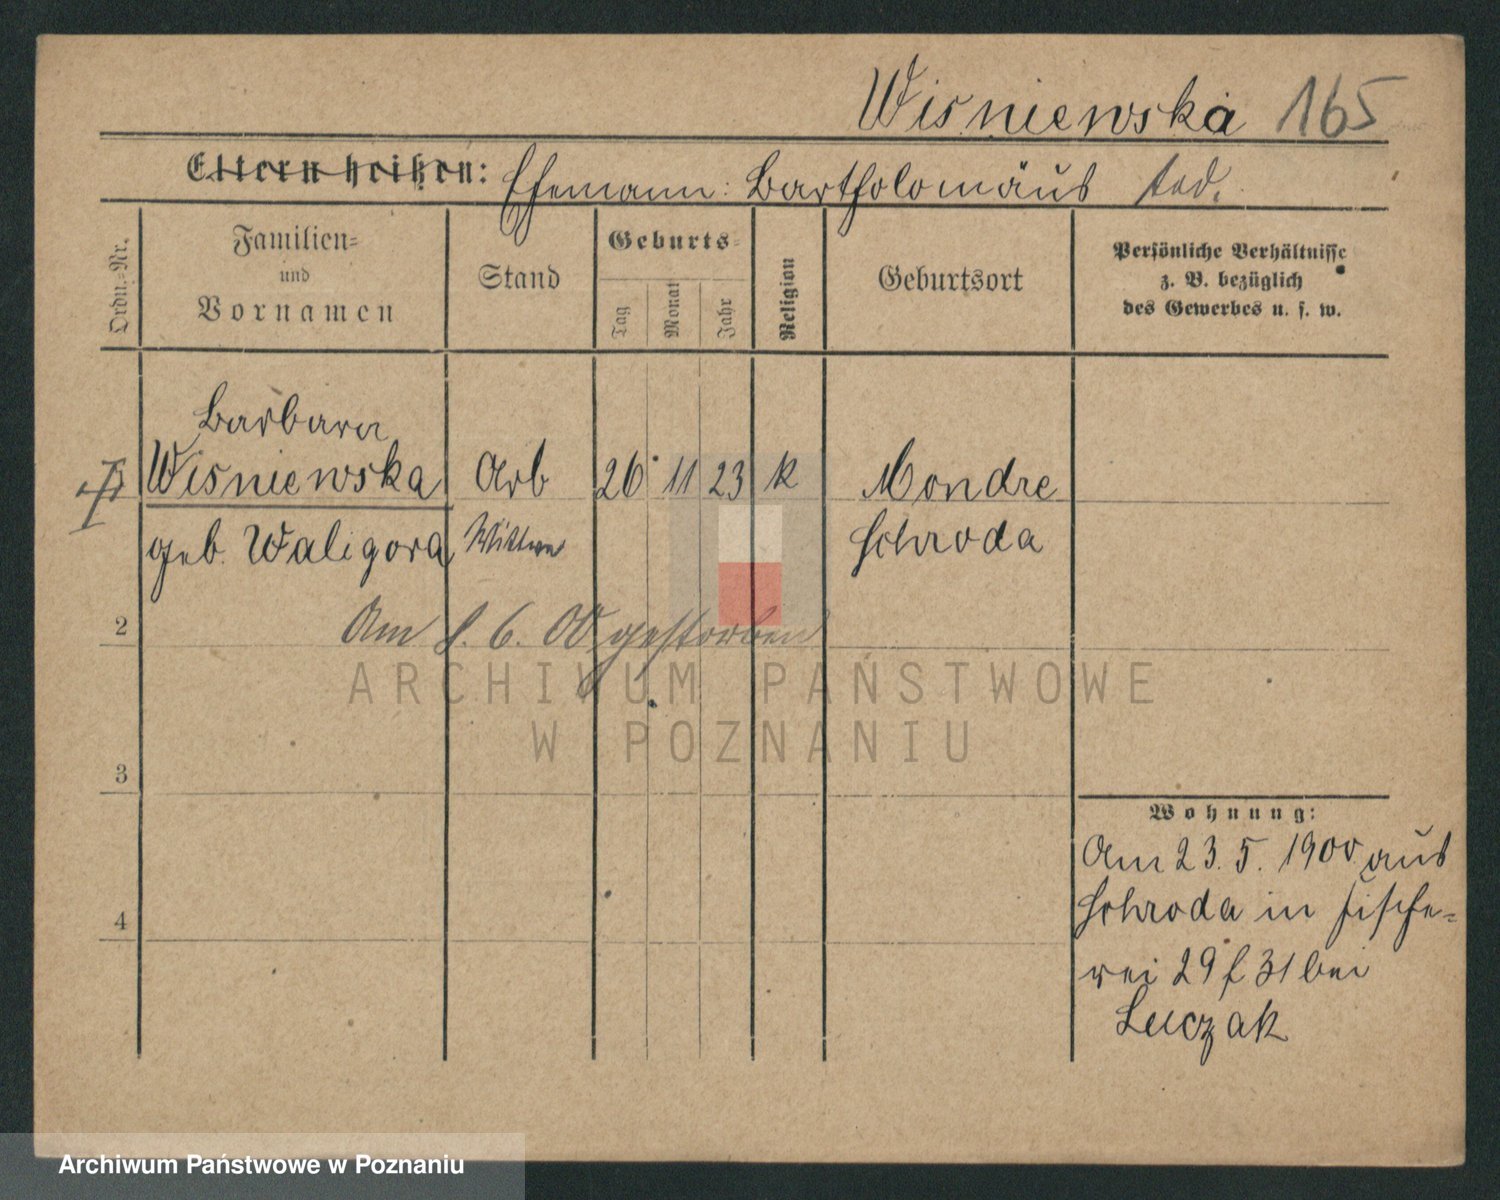 Wisniewska 165
Eltern heißen: Ehemann: Bartholomäus tod.
Ordn.-Nr.
Familien-
und
Vornamen
Stand
Geburts-
Tag
Monat
Jahr
Religion
Geburtsort
Persönliche Verhältnisse
z. B. bezüglich
des Gewerbes u. s. w.
Barbara
Wisniewska Arb 26 11 23 k Mondre
geb. Waligora Wittwe Schroda
2
Am 8. 6. 00 gestorben
ARCHIWUM PAŃSTWOWE
W POZNANIU
3
Wohnung:
Am 23. 5. 1900 aus
Schroda in Fische-
rei 29 f 31 bei
Luczak
4
Archiwum Państwowe w Poznaniu